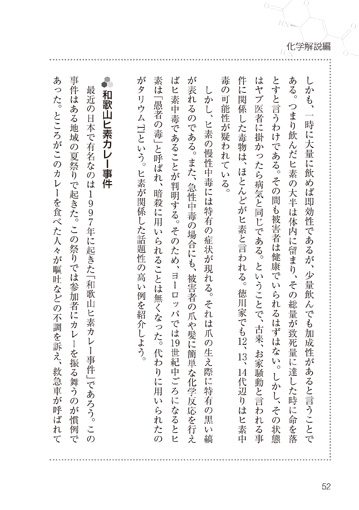 化学解説編
しかも、一時に大量に飲めば即効性であるが、少量飲んでも加成性があると言うことで
ある。つまり飲んだヒ素の大半は体内に留まり、その総量が致死量に達した時に命を落
とすと言うわけである。その間も被害者は健康でいられるはずはない。しかし、その状態
はヤブ医者に掛かったら病気と同じである。ということで、古来、お家騒動と言われる事
件に関係した毒物は、ほとんどがヒ素と言われる。徳川家でも12、13、14代辺りはヒ素中
毒の可能性が疑われている。
しかし、ヒ素の慢性中毒には特有の症状が現れる。それは爪の生え際に特有の黒い縞
が表れるのである。また、急性中毒の場合にも、被害者の爪や髪に簡単な化学反応を行え
ばヒ素中毒であることが判明する。そのため、ヨーロッパでは19世紀中ごろになるとヒ
素は「愚者の毒」と呼ばれ、暗殺に用いられることは無くなった。代わりに用いられたの
がタリウムTlという。ヒ素が関係した話題性の高い例を紹介しよう。
和歌山ヒ素カレー事件
最近の日本で有名なのは1997年に起きた「和歌山ヒ素カレー事件」であろう。この
事件はある地域の夏祭りで起きた。この祭りでは参加者にカレーを振る舞うのが慣例で
あった。ところがこのカレーを食べた人々が嘔吐などの不調を訴え、救急車が呼ばれて
52